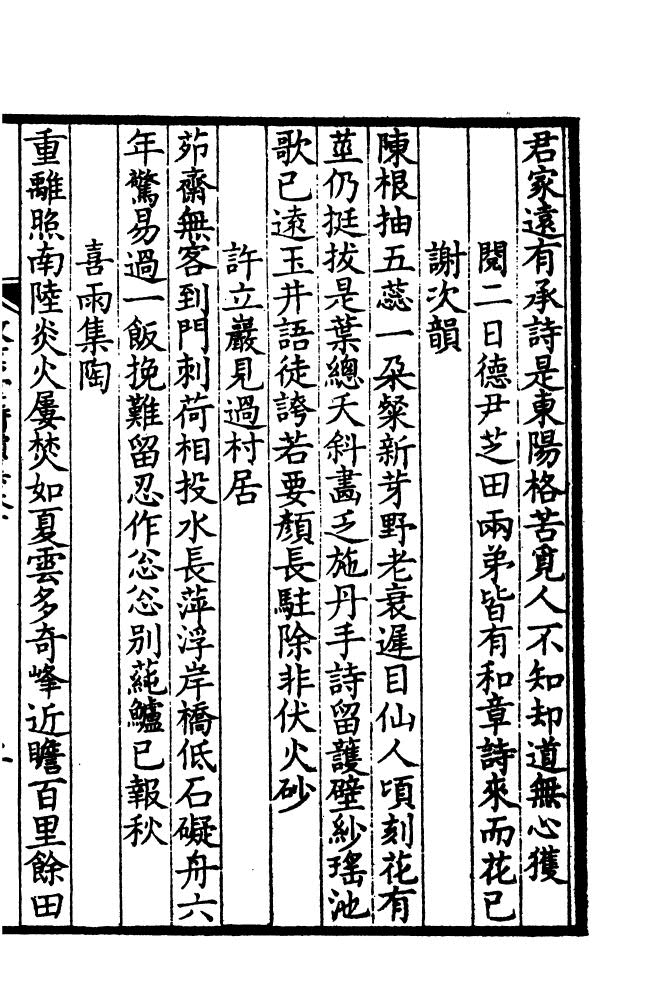 君家遠有承詩是東陽格苦覓人不知却道無心獲
閱二日德尹芝田兩弟皆有和章詩來而花已
謝次韻
陳根抽五蕊一朶粲新芽野老衰遲目仙人頃刻花有
莖仍挺拔是葉總夭斜畵乏施丹手詩留護壁紗瑤池
歌已遠玉井語徒誇若要顏長駐除非伏火砂
許立巖見過村居
茆齋無客到門刺荷相投水長萍浮岸橋低石礙舟六
年驚易過一飯挽難留忍作忩忩别蒓鱸已報秋
喜雨集陶
重離照南陸炎火屢焚如夏雲多奇峰近瞻百里餘田